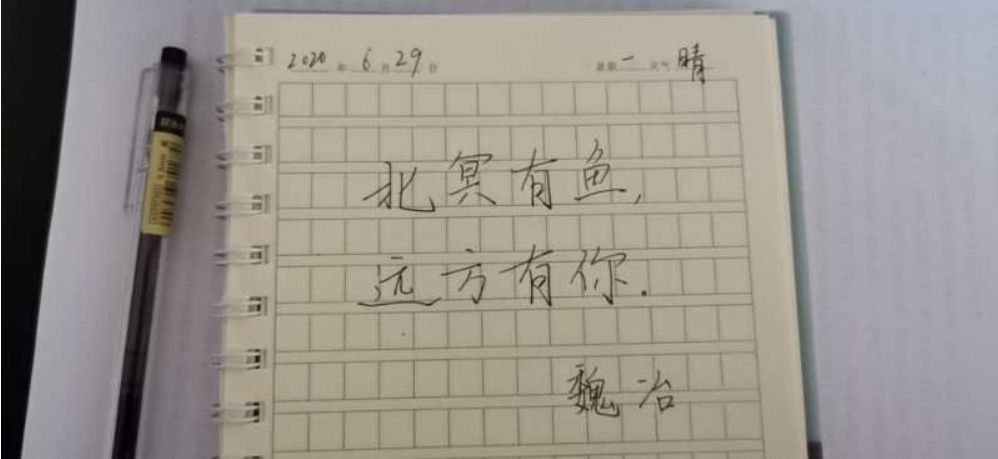 2020年6月29日 星期一 天气晴
北冥有鱼,
远方有你.
魏冶